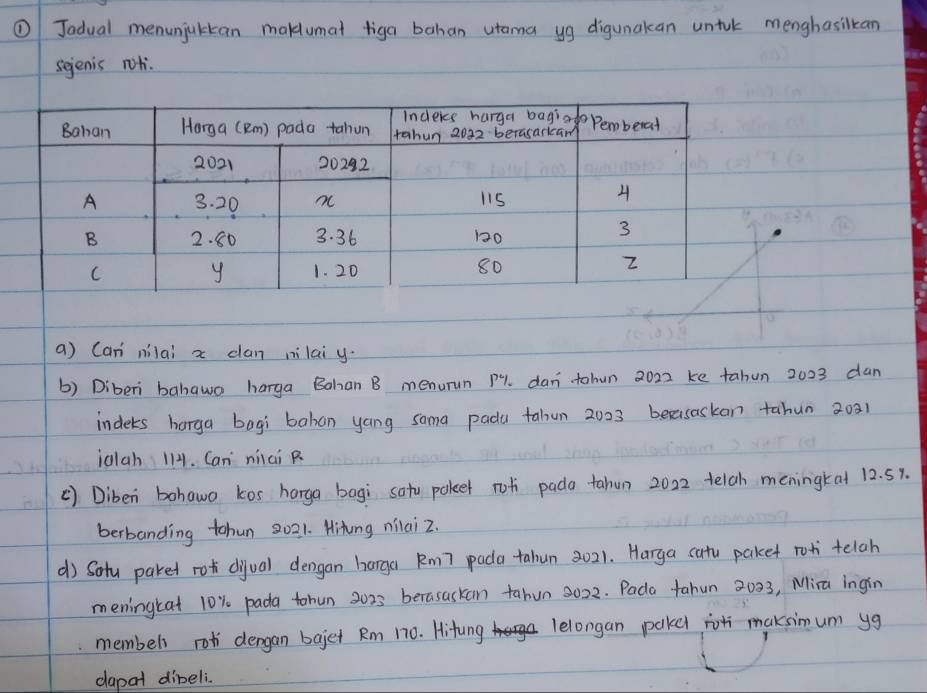 ① Jadual menunjukkan maklumat tiga bahan utama yg digunakan untuk menghasilkan
sejenis roti.
Bahan Harga (Rm) pada tahun Indeks harga bagi Pemberat
tahun 2022 berasaskan
2021 2022
A 3.20 x 115 4
B 2.80 3.36 120 3
C y 1.20 80 z
a) Cari nilai x dan nilai y.
b) Diberi bahawa harga Bahan B menurun P% dari tahun 2022 ke tahun 2023 dan
indeks harga bagi bahan yang sama pada tahun 2023 berasaskan tahun 2021
ialah 114. Cari nilai P.
c) Diberi bahawa kos harga bagi satu paket roti pada tahun 2022 telah meningkat 12.5%
berbanding tahun 2021. Hitung nilai z.
d) Satu paket roti dijual dengan harga Rm7 pada tahun 2021. Harga satu paket roti telah
meningkat 10% pada tahun 2023 berasaskan tahun 2022. Pada tahun 2023, Mira ingin
membeli roti dengan bajet Rm 170. Hitung harga lelongan paket roti maksimum yg
dapat dibeli.